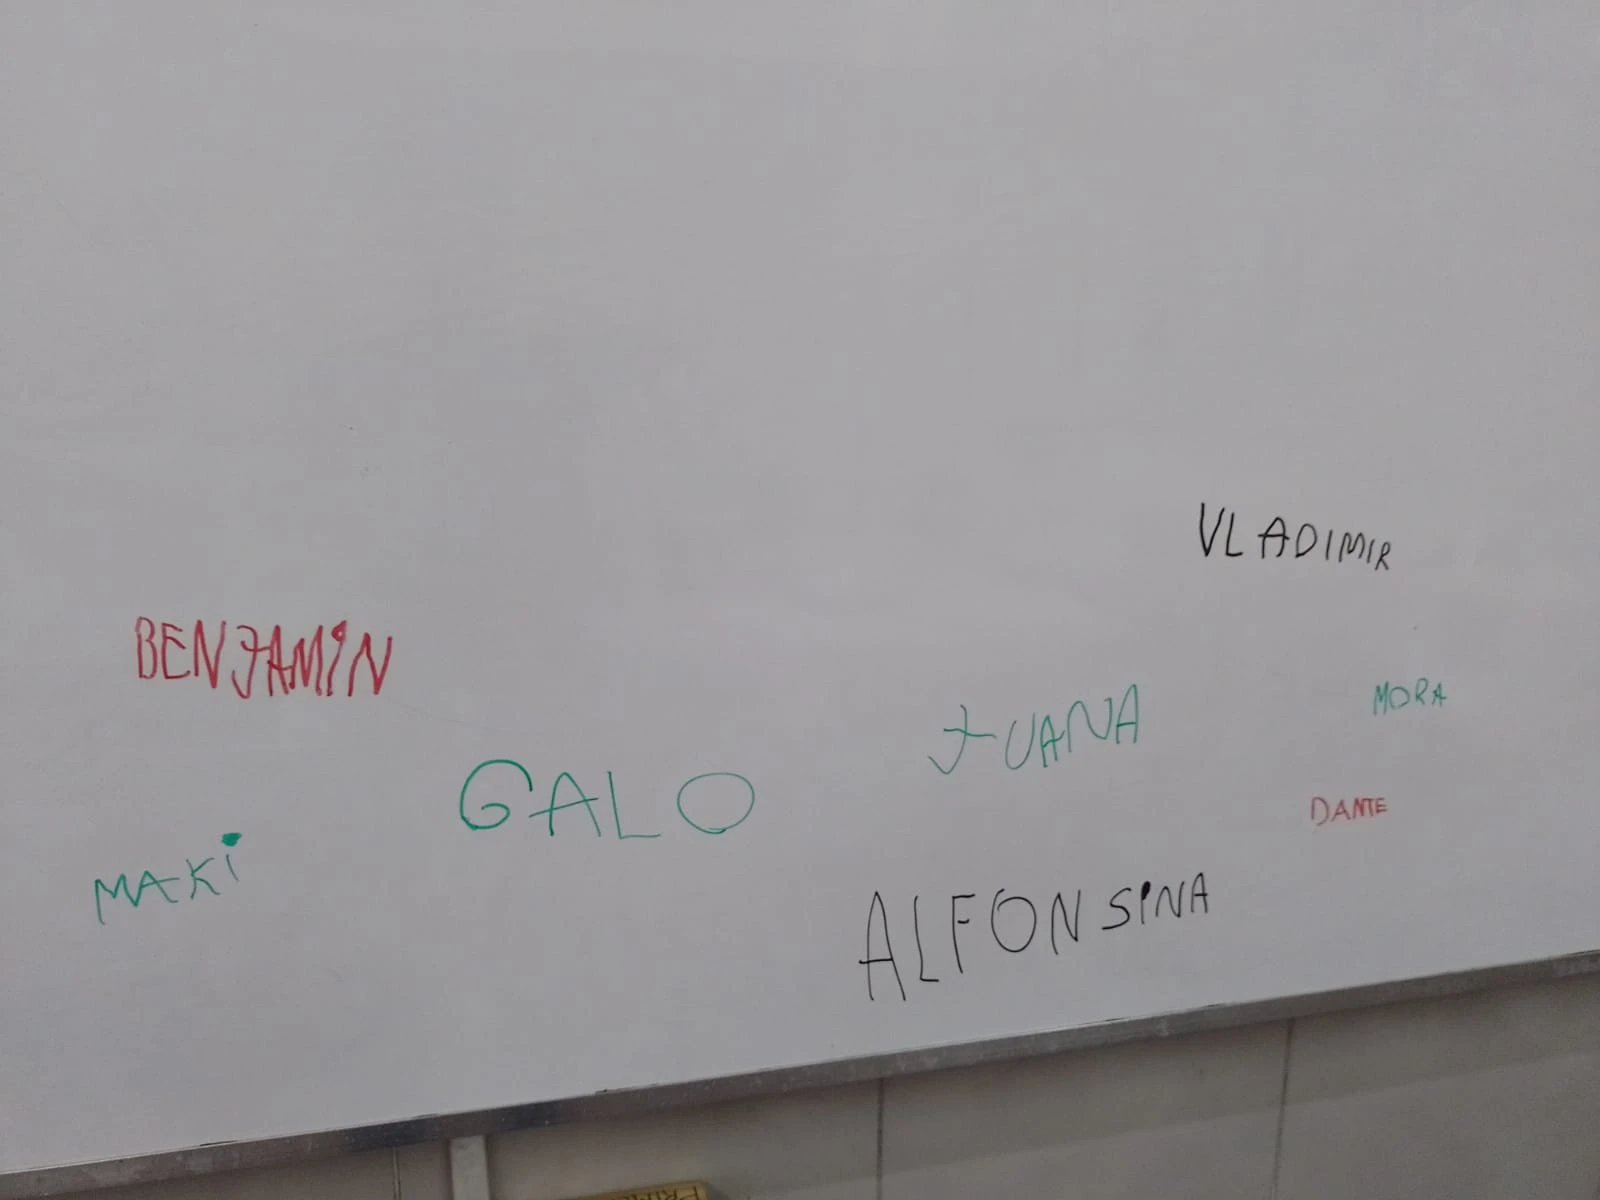 VLADIMIR
BENJAMIN
MORA
JUANA
GALO
DANTE
MAKI
ALFONSINA